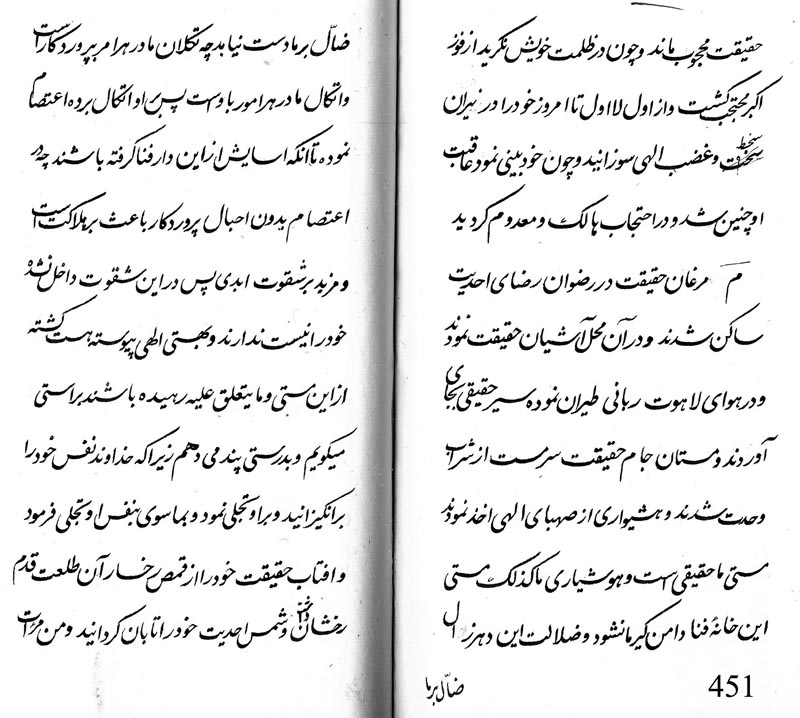 حقیقت محجوب ماند و چون در ظلمت خویش نگرید از فوز
اکبر محتجب گشت و از اول لا اول تا امروز خود را در نیران
سخط و غضب الهی سوزانید و چون خود بینی نمود عاقبت
او چنین شد و در احتجاب هالک و معدوم گردید
م مرغان حقیقت در رضوان رضای احدیت
ساکن شدند و در آن محل آشیان حقیقت نمودند
و در هوای لاهوت ربانی طیران نموده سیر حقیقی بجای
آوردند و مستان جام حقیقت سرمست از شراب
وحدت شدند و هشیواری از صهبای الهی اخذ نمودند
مستی ما حقیقی است و هوشیاری ما کذلک مستی
این خانهٔ فنا دامن گیر ما نشود و ضلالت این دهر زال
ضالّ بر ما
451
ضالّ بر ما دست نیابد چه تکلان ما در هر امر بپروردگار است
و اتکال ما در هر امور با وست پس بر او اتکال برده اعتصام
نموده تا آنکه اسایش از این دار فنا گرفته باشند چه در
اعتصام بدون احبال پروردگار باعث بر هلاکت است
و مزید بر شقوت ابدی پس در این شقوت داخل نشده
خود را نیست ندارند و بهستی الهی پیوسته هست گشته
از این مستی و ما یتعلق علیه رهیده باشند براستی
میگویم و بدرستی پند می دهم زیرا که خداوند نفس خود را
برانگیزانید و بر او تجلی نمود و بما سوی بنفس او تجلی فرمود
و افتاب حقیقت خود را از قمص رخسار آن طلعت قدم
رخشان داشت و شمس احدیت خود را تابان گردانید و من مرات